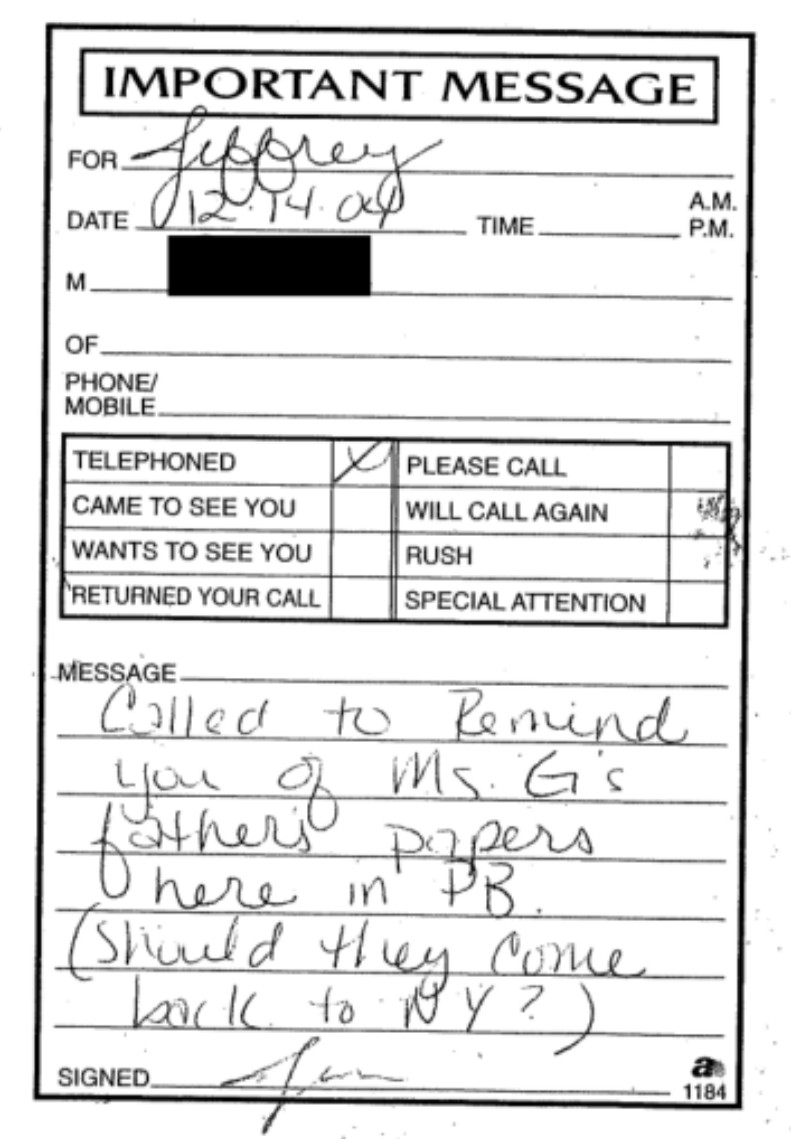 IMPORTANT MESSAGE
FOR Jeffrey
DATE 12.14.04 TIME A.M.
P.M.
M
OF
PHONE/
MOBILE
TELEPHONED PLEASE CALL
CAME TO SEE YOU WILL CALL AGAIN
WANTS TO SEE YOU RUSH
RETURNED YOUR CALL SPECIAL ATTENTION
MESSAGE
Called to Remind
you of Ms. G's
father's papers
here in PB.
(Should they come
back to NY?)
SIGNED
a
1184